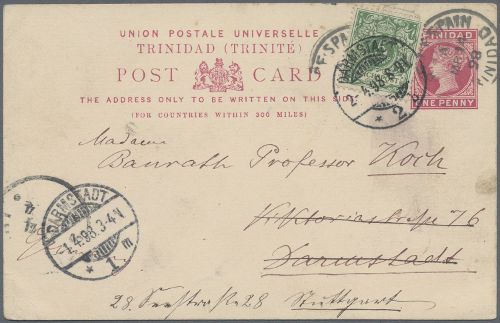 UNION POSTALE UNIVERSELLE
TRINIDAD (TRINITÉ)
POST CARD
THE ADDRESS ONLY TO BE WRITTEN ON THIS SIDE
(FOR COUNTRIES WITHIN 300 MILES)
TRINIDAD
ONE PENNY
TRINIDAD
DARMSTADT
2
Madame
Baurath Professor Koch
Viktoriastraße 76
Darmstadt
DARMSTADT
1.4.98.3-4N
1 m
28. Seestraße 28 Stuttgart